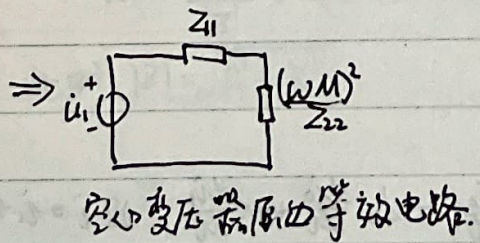 Z₁₁
⇒ u̇₁ + - (ωM)²/Z₂₂
空心变压器原边等效电路.